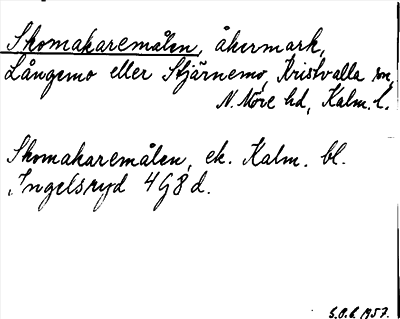 Skomakaremålen, åkermark,
Långemo eller Stjärnemo, Kristvalla sn,
N. Möre hd, Kalm. l.
Skomakaremålen, ek. Kalm. bl.
Ingelsryd 4G8d.
1957.